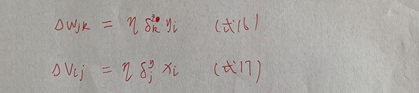 Δwⱼₖ = η δₖᵒ yᵢ (式16)
Δvᵢⱼ = η δⱼʸ xᵢ (式17)